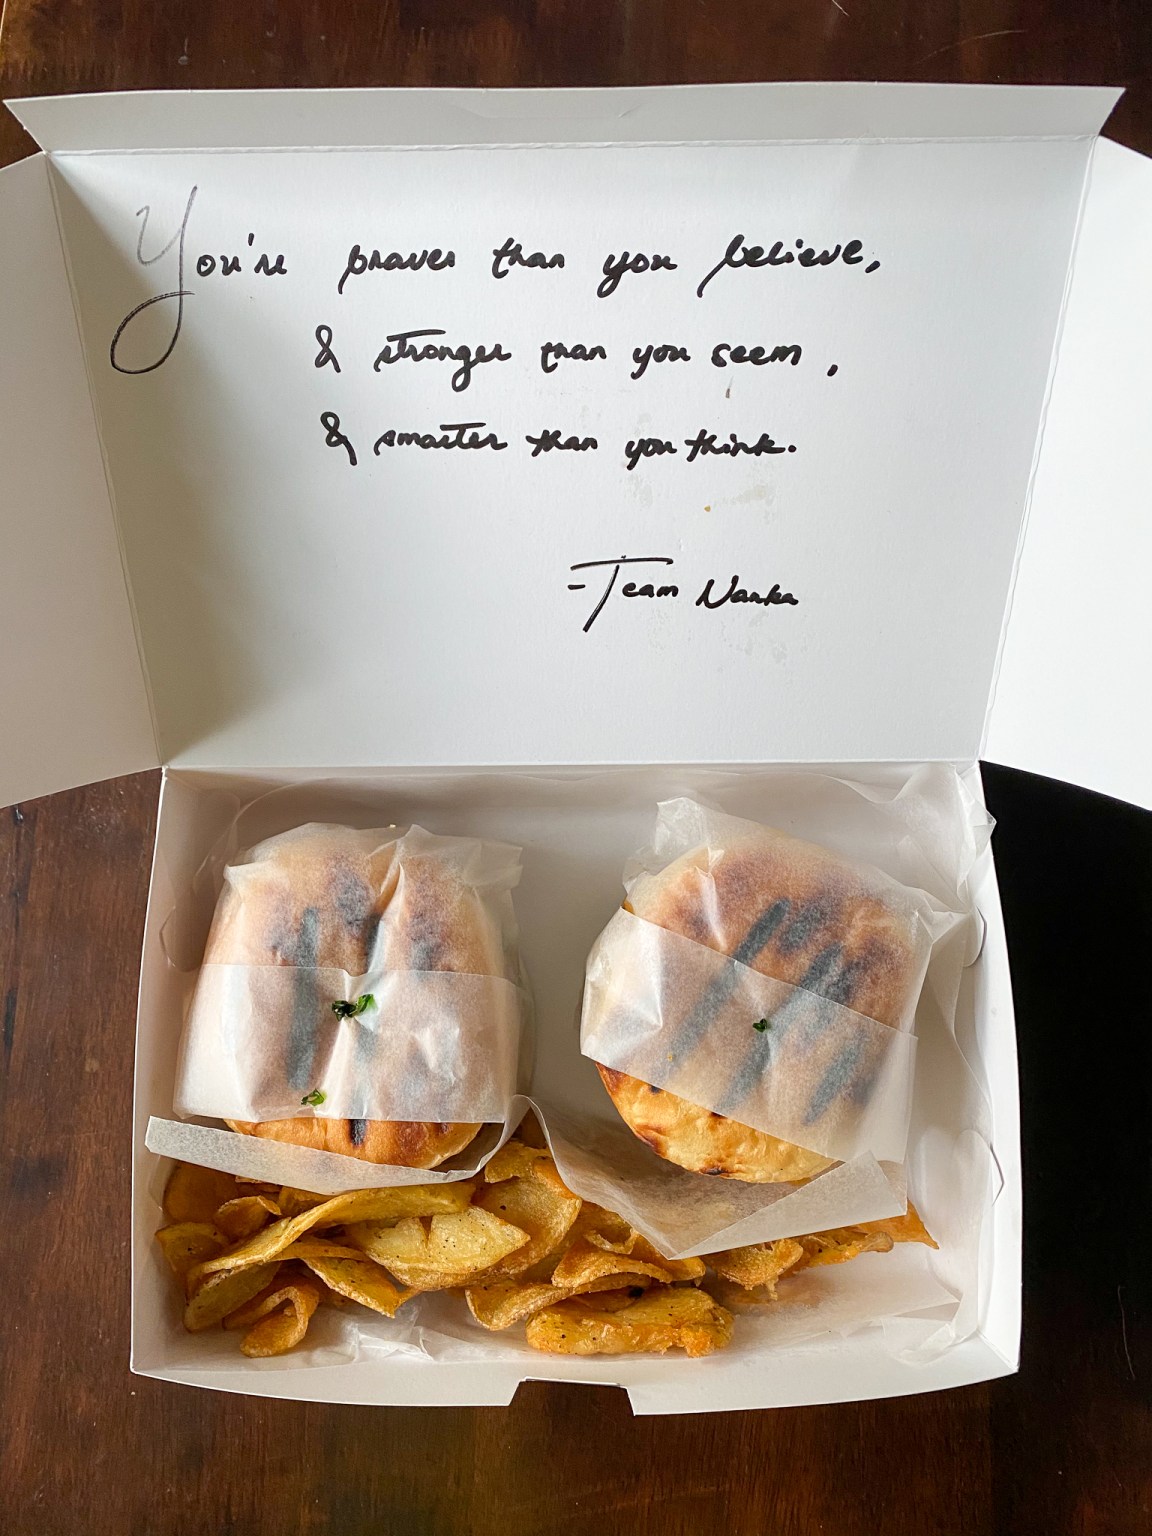 You're braver than you believe,
& stronger than you seem,
& smarter than you think.
-Team Nanka